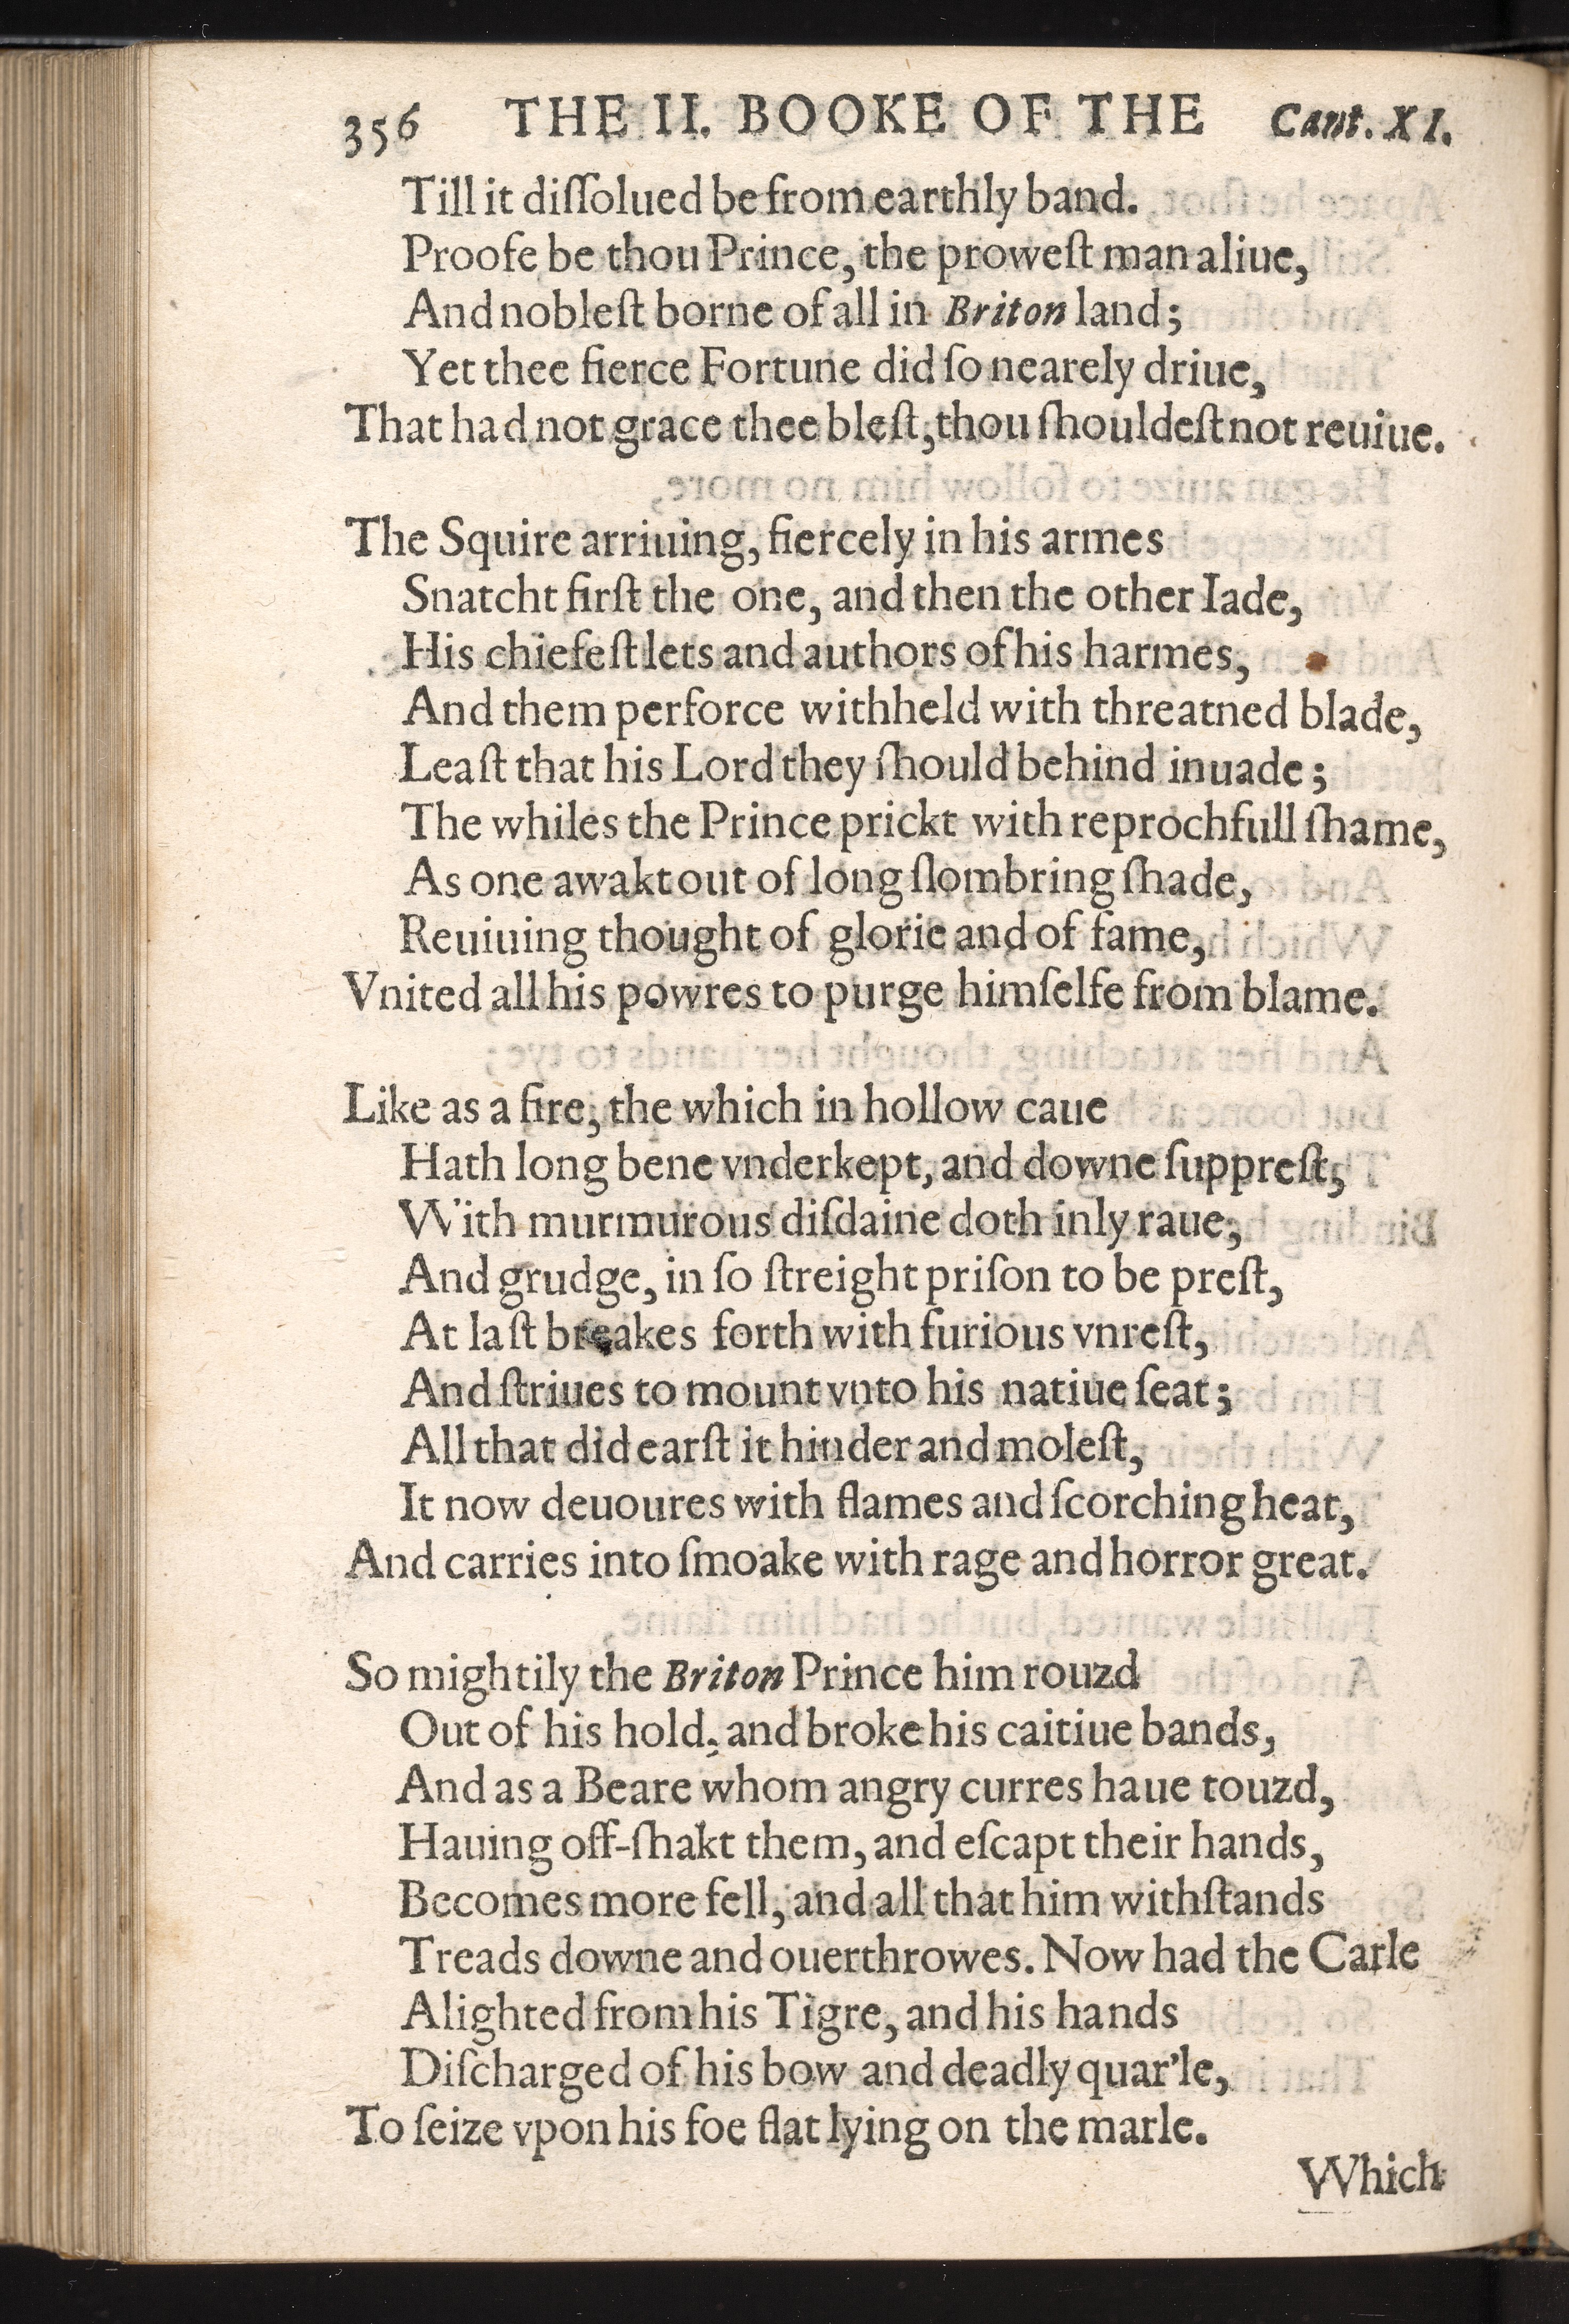 356 THE II. BOOKE OF THE Cant. XI.
Till it diſſolued be from earthly band.
Proofe be thou Prince, the proweſt man aliue,
And nobleſt borne of all in Briton land;
Yet thee fierce Fortune did ſo nearely driue,
That had not grace thee bleſt, thou ſhouldeſt not reuiue.
The Squire arriuing, fiercely in his armes
Snatcht firſt the one, and then the other Iade,
His chiefeſt lets and authors of his harmes,
And them perforce withheld with threatned blade,
Leaſt that his Lord they ſhould behind inuade;
The whiles the Prince prickt with reprochfull ſhame,
As one awakt out of long ſlombring ſhade,
Reuiuing thought of glorie and of fame,
Vnited all his powres to purge himſelfe from blame.
Like as a fire, the which in hollow caue
Hath long bene vnderkept, and downe ſuppreſt,
With murmurous diſdaine doth inly raue,
And grudge, in ſo ſtreight priſon to be preſt,
At laſt breakes forth with furious vnreſt,
And ſtriues to mount vnto his natiue ſeat;
All that did earſt it hinder and moleſt,
It now deuoures with flames and ſcorching heat,
And carries into ſmoake with rage and horror great.
So mightily the Briton Prince him rouzd
Out of his hold, and broke his caitiue bands,
And as a Beare whom angry curres haue touzd,
Hauing off-ſhakt them, and eſcapt their hands,
Becomes more fell, and all that him withſtands
Treads downe and ouerthrowes. Now had the Carle
Alighted from his Tigre, and his hands
Diſcharged of his bow and deadly quar'le,
To ſeize vpon his foe flat lying on the marle.
Which